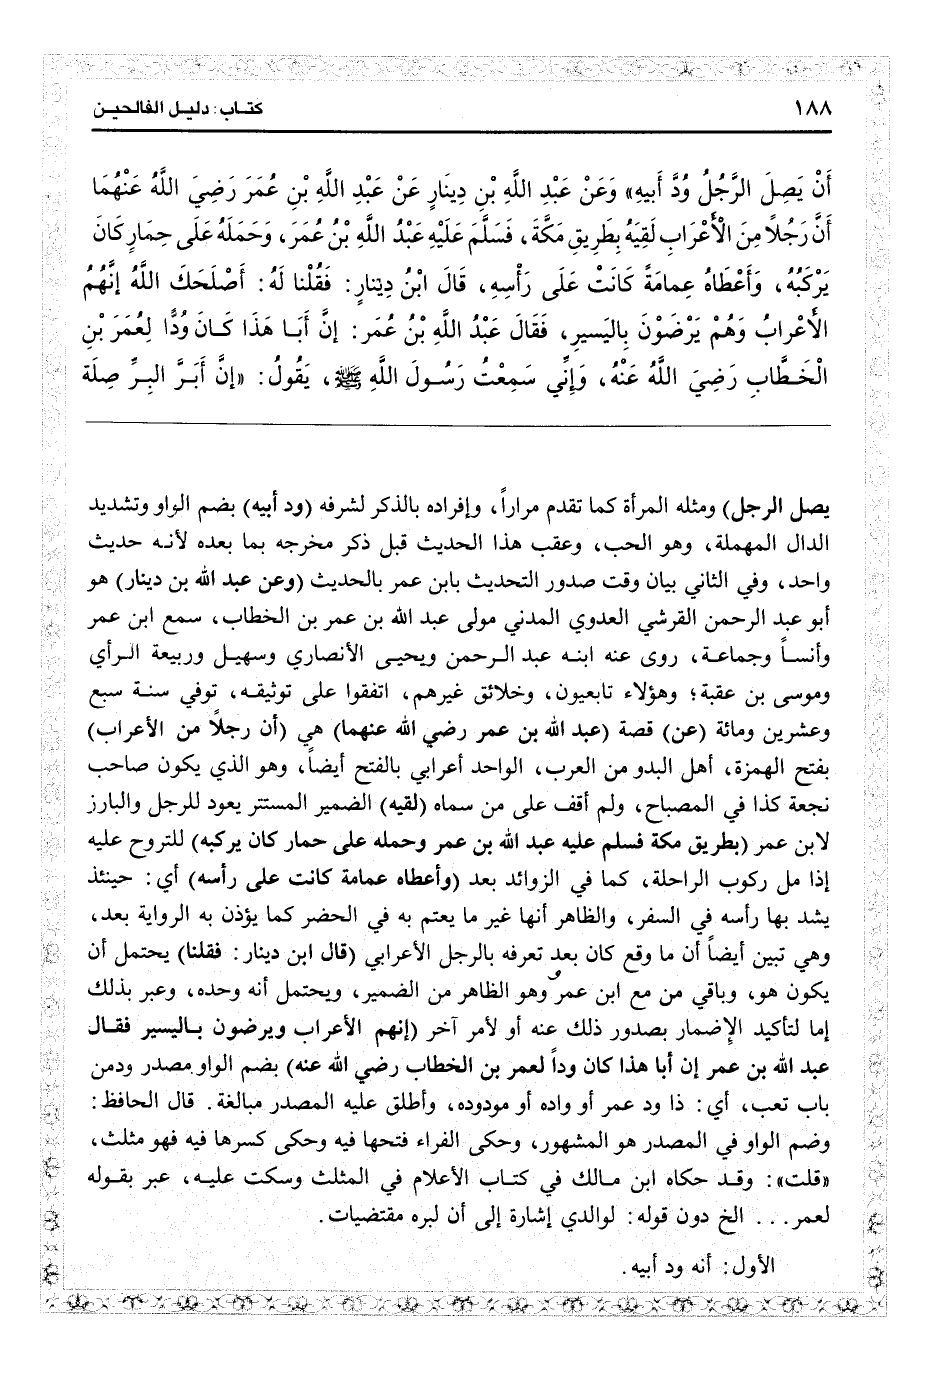 ١٨٨ كتاب: دليل الفالحين
أَنْ يَصِلَ الرَّجُلُ وُدَّ أَبِيهِ» وَعَنْ عَبْدِ اللَّهِ بْنِ دِينَارٍ عَنْ عَبْدِ اللَّهِ بْنِ عُمَرَ رَضِيَ اللَّهُ عَنْهُمَا
أَنَّ رَجُلًا مِنَ الْأَعْرَابِ لَقِيَهُ بِطَرِيقِ مَكَّةَ، فَسَلَّمَ عَلَيْهِ عَبْدُ اللَّهِ بْنُ عُمَرَ، وَحَمَلَهُ عَلَى حِمَارٍ كَانَ
يَرْكَبُهُ، وَأَعْطَاهُ عِمَامَةً كَانَتْ عَلَى رَأْسِهِ، قَالَ ابْنُ دِينَارٍ: فَقُلْنَا لَهُ: أَصْلَحَكَ اللَّهُ إِنَّهُمُ
الأَعْرَابُ وَهُمْ يَرْضَوْنَ بِاليَسيرِ، فَقَالَ عَبْدُ اللَّهِ بْنُ عُمَر: إِنَّ أَبَا هَذَا كَانَ وُدًّا لِعُمَرَ بْنِ
الْخَطَّابِ رَضِيَ اللَّهُ عَنْهُ، وَإِنِّي سَمِعْتُ رَسُولَ اللَّهِ ﷺ، يَقُولُ: «إِنَّ أَبَرَّ البِرِّ صِلَةَ
يصل الرجل) ومثله المرأة كما تقدم مراراً، وإفراده بالذكر لشرفه (ود أبيه) بضم الواو وتشديد
الدال المهملة، وهو الحب، وعقب هذا الحديث قبل ذكر مخرجه بما بعده لأنه حديث
واحد، وفي الثاني بيان وقت صدور التحديث بابن عمر بالحديث (وعن عبد الله بن دينار) هو
أبو عبد الرحمن القرشي العدوي المدني مولى عبد الله بن عمر بن الخطاب، سمع ابن عمر
وأنساً وجماعة، روى عنه ابنه عبد الرحمن ويحيى الأنصاري وسهيل وربيعة الرأي
وموسى بن عقبة؛ وهؤلاء تابعيون، وخلائق غيرهم، اتفقوا على توثيقه، توفي سنة سبع
وعشرين ومائة (عن) قصة (عبد الله بن عمر رضي الله عنهما) هي (أن رجلاً من الأعراب)
بفتح الهمزة، أهل البدو من العرب، الواحد أعرابي بالفتح أيضاً، وهو الذي يكون صاحب
نجعة كذا في المصباح، ولم أقف على من سماه (لقيه) الضمير المستتر يعود للرجل والبارز
لابن عمر (بطريق مكة فسلم عليه عبد الله بن عمر وحمله على حمار كان يركبه) للتروح عليه
إذا مل ركوب الراحلة، كما في الزوائد بعد (وأعطاه عمامة كانت على رأسه) أي: حينئذ
يشد بها رأسه في السفر، والظاهر أنها غير ما يعتم به في الحضر كما يؤذن به الرواية بعد،
وهي تبين أيضاً أن ما وقع كان بعد تعرفه بالرجل الأعرابي (قال ابن دينار: فقلنا) يحتمل أن
يكون هو، وباقي من مع ابن عمر وهو الظاهر من الضمير، ويحتمل أنه وحده، وعبر بذلك
إما لتأكيد الإضمار بصدور ذلك عنه أو لأمر آخر (إنهم الأعراب ويرضون باليسير فقال
عبد الله بن عمر إن أبا هذا كان وداً لعمر بن الخطاب رضي الله عنه) بضم الواو مصدر ودمن
باب تعب، أي: ذا ود عمر أو واده أو مودوده، وأطلق عليه المصدر مبالغة. قال الحافظ:
وضم الواو في المصدر هو المشهور، وحكى الفراء فتحها فيه وحكى كسرها فيه فهو مثلث،
«قلت»: وقد حكاه ابن مالك في كتاب الأعلام في المثلث وسكت عليه، عبر بقوله
لعمر... الخ دون قوله: لوالدي إشارة إلى أن لبره مقتضيات.
الأول: أنه ود أبيه.